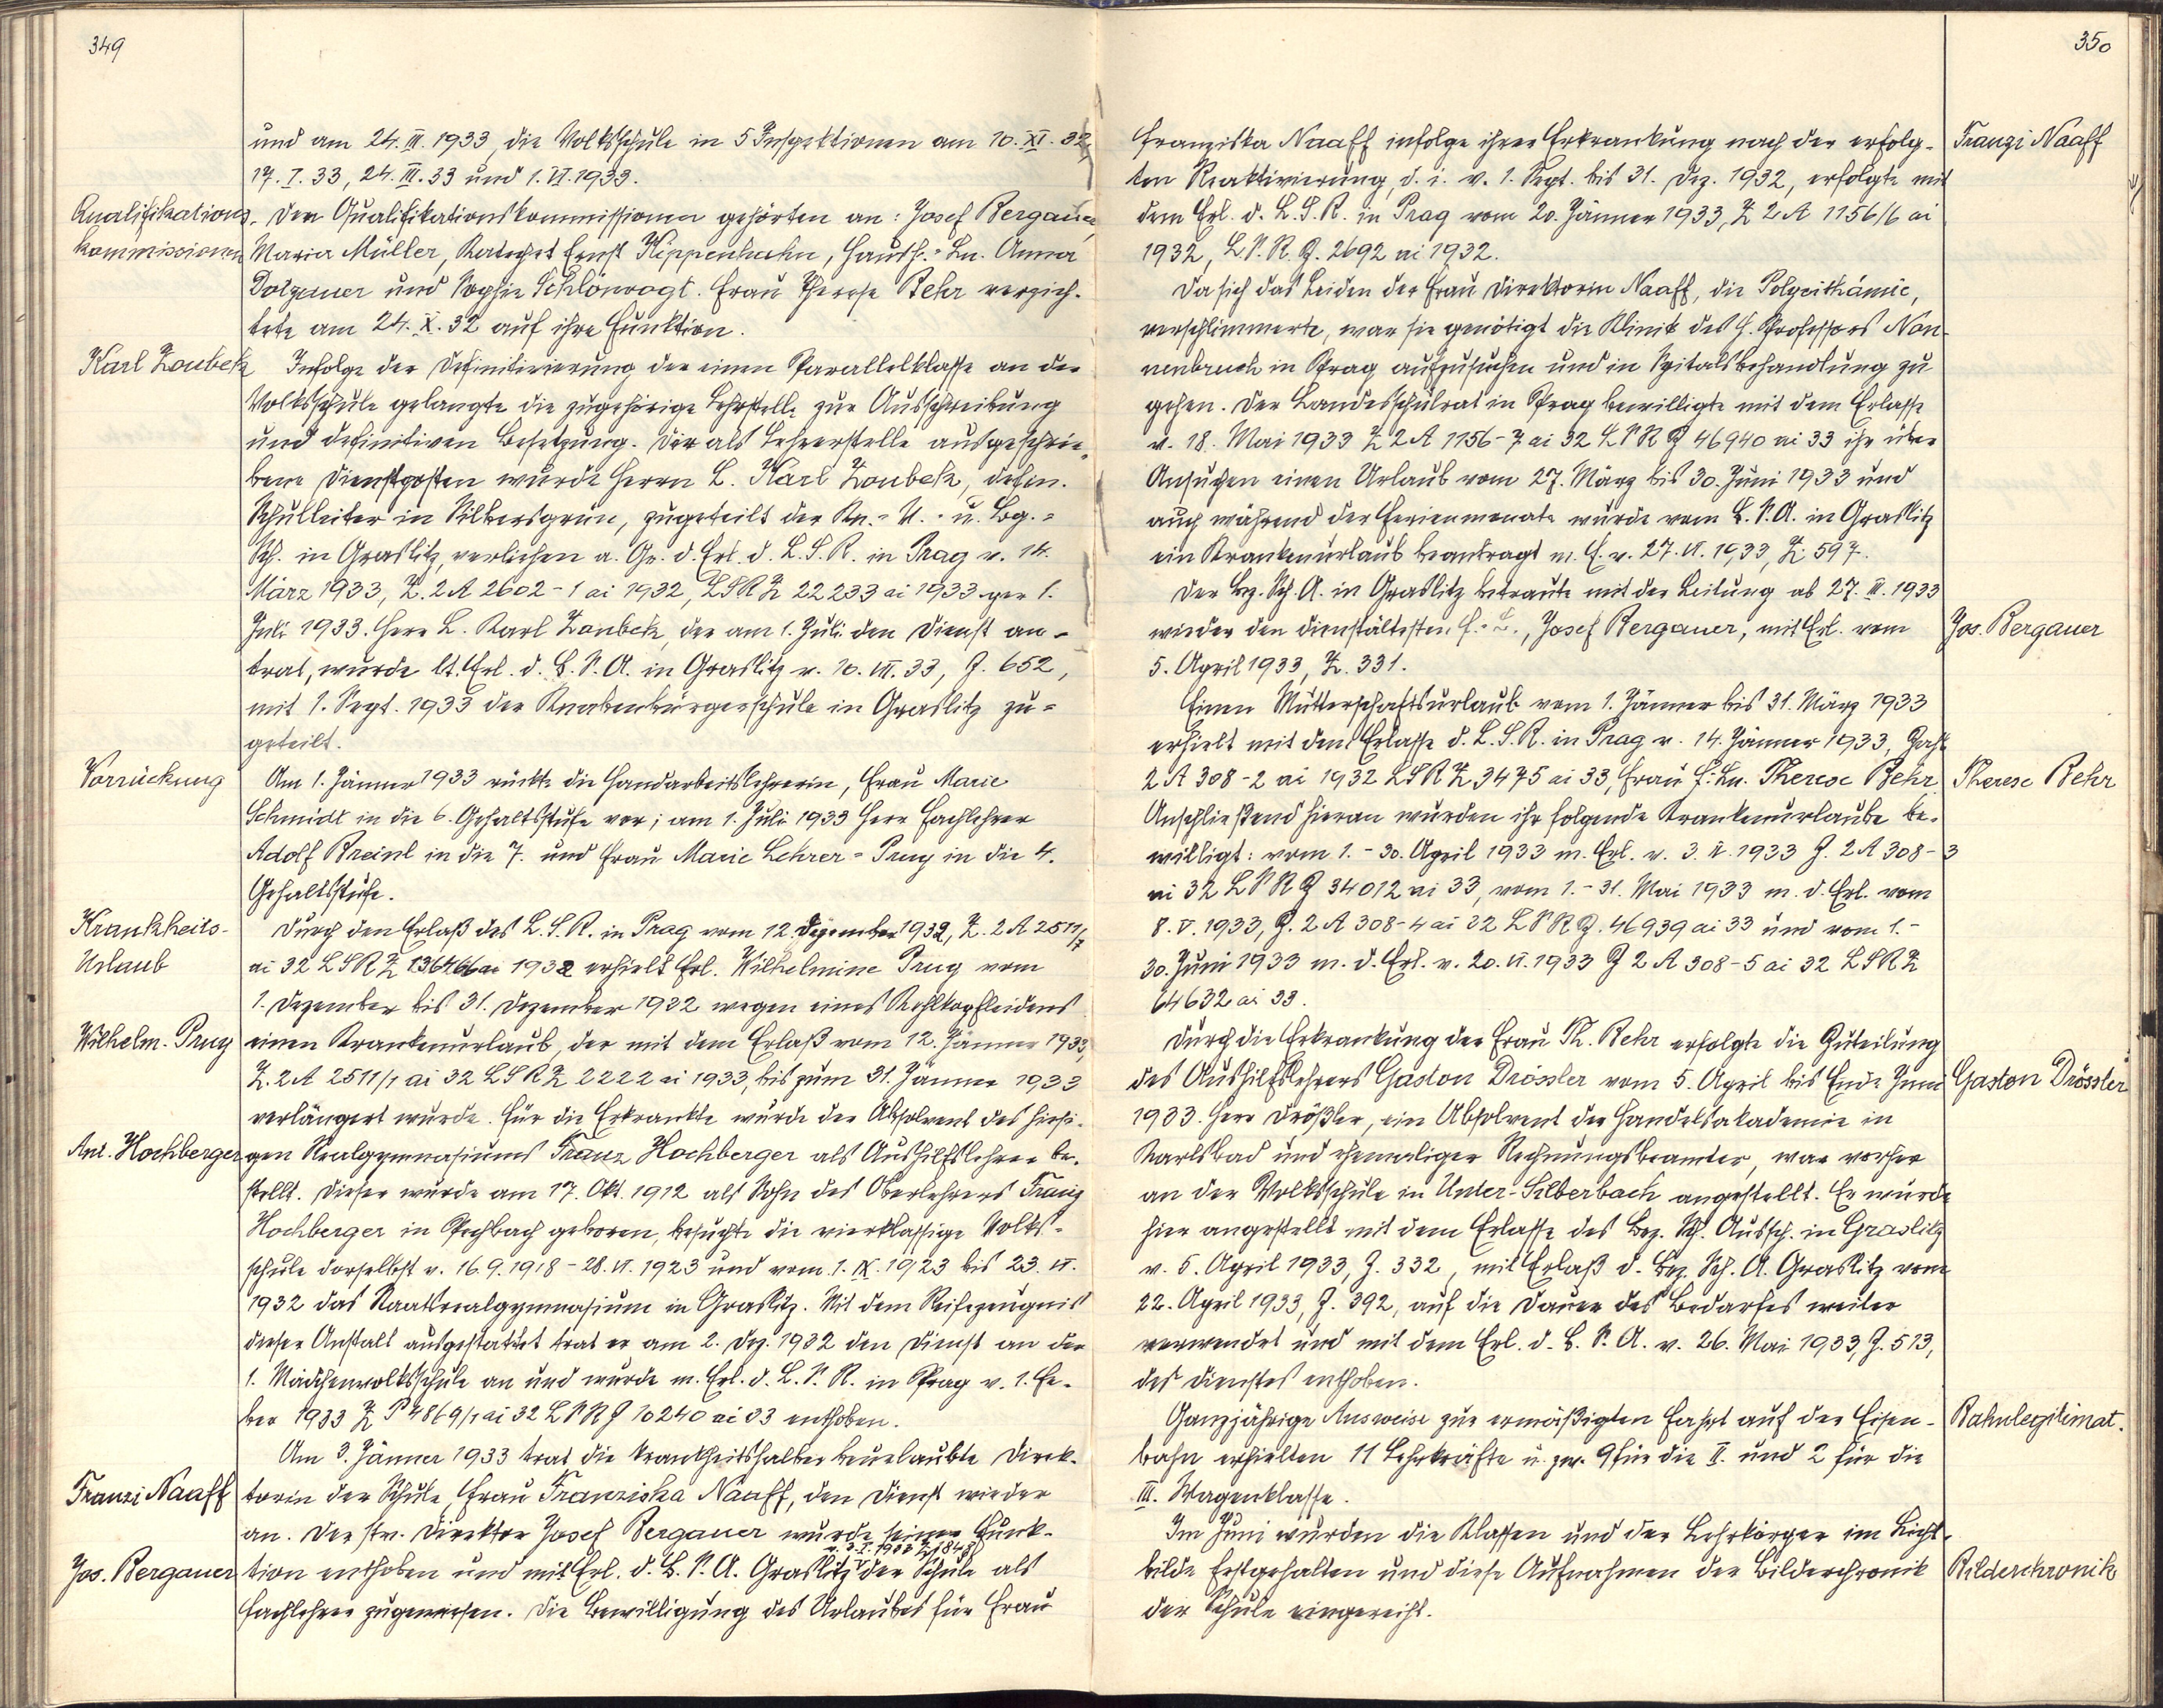 349
und am 24. III. 1933, die Volksschule in 5 Inspektionen am 10. XI. 32,
17. I. 33, 24. III. 33 und 1. VI. 1933.
Qualifikations-
kommissionen
Den Qualifikationskommissionen gehörten an: Josef Bergauer,
Maria Müller, Katechet Ernst Kippenhahn, Handf.-Ln. Anna
Dotzauer und Sophie Schlönvogt. Frau Therese Behr verzich-
tete am 24. X. 32 auf ihre Funktion.
Karl Zoubek
Infolge der Definitivierung der einen Parallelklasse an der
Volksschule gelangte die zugehörige Lehrstelle zur Ausschreibung
und definitiven Besetzung. Der als Lehrerstelle ausgeschrie-
bene Dienstposten wurde Herrn L. Karl Zoubek, defin.
Schulleiter in Silbersgrün, zugeteilt der Kn.-V.- u. Bg.-
Sch. in Graslitz, verliehen a. Gr. d. Erl. d. L.S.R. in Prag v. 14.
März 1933, Z. 2A 2602-1 ai 1932, LSR Z 22233 ai 1933 per 1.
Juli 1933. Herr L. Karl Zoubek, der am 1. Juli den Dienst an-
trat, wurde lt. Erl. d. B.S.A. in Graslitz v. 10. VII. 33, Z. 652,
mit 1. Sept. 1933 der Knabenbürgerschule in Graslitz zu-
geteilt.
Vorrückung
Am 1. Jänner 1933 rückte die Handarbeitslehrerin, Frau Marie
Schmidt in die 6. Gehaltsstufe vor; am 1. Juli 1933 Herr Fachlehrer
Adolf Breinl in die 7. und Frau Marie Lehrer-Prug in die 4.
Gehaltsstufe.
Krankheits-
Urlaub
Durch den Erlaß des L.S.R. in Prag vom 12. Dezember 1932, Z. 2A 2511/7
ai 32 LSR Z 136466 ai 1932 erhielt Frl. Wilhelmine Prug vom
1. Dezember bis 31. Dezember 1932 wegen eines Kehlkopfleidens
Wilhelm. Prug
einen Krankenurlaub, der mit dem Erlaß vom 12. Jänner 1933,
Z. 2A 2511/1 ai 32 LSR Z 2222 ai 1933, bis zum 31. Jänner 1933
verlängert wurde. Für die Erkrankte wurde der Absolvent des hiesi-
Ant. Hochberger
gen Realgymnasiums Franz Hochberger als Aushilfslehrer be-
stellt. Dieser wurde am 17. Okt. 1912 als Sohn des Oberlehrers Franz
Hochberger in Pechbach geboren, besuchte die vierklassige Volks-
schule dorselbst v. 16.9.1918 - 28. VI. 1923 und vom 1. IX. 1923 bis 23. VI.
1932 das Staatsrealgymnasium in Graslitz. Mit dem Reifezeugnis
dieser Anstalt ausgestattet trat er am 2. Dez. 1932 den Dienst an der
1. Mädchenvolksschule an und wurde m. Erl. d. L.S.R. in Prag v. 1. Fe-
ber 1933 Z P 4869/1 ai 32 LSR Z 10240 ai 33 enthoben.
Am 3. Jänner 1933 trat die krankheitshalber beurlaubte Direk-
Franzi Naaff
torin der Schule, Frau Franziska Naaff, den Dienst wieder
an. Der prv. Direktor Josef Bergauer wurde seiner Funk-
v. 3. I. 1933 Z. 1843
Jos. Bergauer
tion enthoben und mit Erl. d. B.S.A. Graslitz der Schule als
Fachlehrer zugewiesen. Die Bewilligung des Urlaubes für Frau
350
Franziska Naaff infolge ihrer Erkrankung nach der erfolg-
Franzi Naaff
ten Reaktivierung, d. i. v. 1. Sept. bis 31. Dez. 1932, erfolgte mit
dem Erl. d. L.S.R. in Prag vom 20. Jänner 1933, Z 2A 1156/6 ai
1932, L.S.R. Z. 2692 ai 1932.
Da sich das Leiden der Frau Direktorin Naaff, die Polycithämie,
verschlimmerte, war sie genötigt die Klinik des H. Professors Non-
nenbruch in Prag aufzusuchen und in Spitalsbehandlung zu
gehen. Der Landesschulrat in Prag bewilligte mit dem Erlasse
v. 18. Mai 1933 Z 2A 1156-7 ai 32 LSR Z 46940 ai 33 ihr über
Ansuchen einen Urlaub vom 27. März bis 30. Juni 1933 und
auch während der Ferienmonate wurde vom B.S.A. in Graslitz
ein Krankenurlaub beantragt m. E. v. 27. VI. 1933, Z. 597.
Der Bez. Sch. A. in Graslitz betraute mit der Leitung ab 27. III. 1933
wieder den dienstältesten F.-L., Josef Bergauer, mit Erl. vom
Jos. Bergauer
5. April 1933, Z. 331.
Einen Mutterschaftsurlaub vom 1. Jänner bis 31. März 1933
erhielt mit dem Erlasse d. L.S.R. in Prag v. 14. Jänner 1933, Zahl
2A 308-2 ai 1932 LSR Z. 3475 ai 33, Frau F.-Ln. Therese Behr.
Therese Behr
Anschließend hieran wurden ihr folgende Krankenurlaube be-
willigt: vom 1.-30. April 1933 m. Erl. v. 3. V. 1933 Z. 2A 308-3
ai 32 LSR Z 34012 ai 33, vom 1.-31. Mai 1933 m. d. Erl. vom
8. V. 1933, Z. 2A 308-4 ai 32 LSR Z. 46939 ai 33 und vom 1.-
30. Juni 1933 m. d. Erl. v. 20. VI. 1933 Z 2A 308-5 ai 32 LSR Z
64632 ai 33.
Durch die Erkrankung der Frau Th. Behr erfolgte die Zuteilung
des Aushilfslehrers Gaston Drössler vom 5. April bis Ende Juni
Gaston Drössler
1933. Herr Drößler, ein Absolvent der Handelsakademie in
Karlsbad und ehemaliger Rechnungsbeamter, war vorher
an der Volksschule in Unter-Silberbach angestellt. Er wurde
hier angestellt mit dem Erlasse des Bez. Sch. Aussch. in Graslitz
v. 5. April 1933, Z. 332, mit Erlaß d. Bez. Sch. A. Graslitz vom
22. April 1933, Z. 392, auf die Dauer des Bedarfes weiter
verwendet und mit dem Erl. d. B.S.A. v. 26. Mai 1933, Z. 513,
des Dienstes enthoben.
Ganzjährige Ausweise zur ermäßigten Fahrt auf der Eisen-
Bahnlegitimat.
bahn erhielten 11 Lehrkräfte u. zw. 9 für die II. und 2 für die
III. Wagenklasse.
Im Juni wurden die Klassen und der Lehrkörper im Licht-
bilde festgehalten und diese Aufnahmen der Bilderchronik
Bilderchronik
der Schule eingereiht.